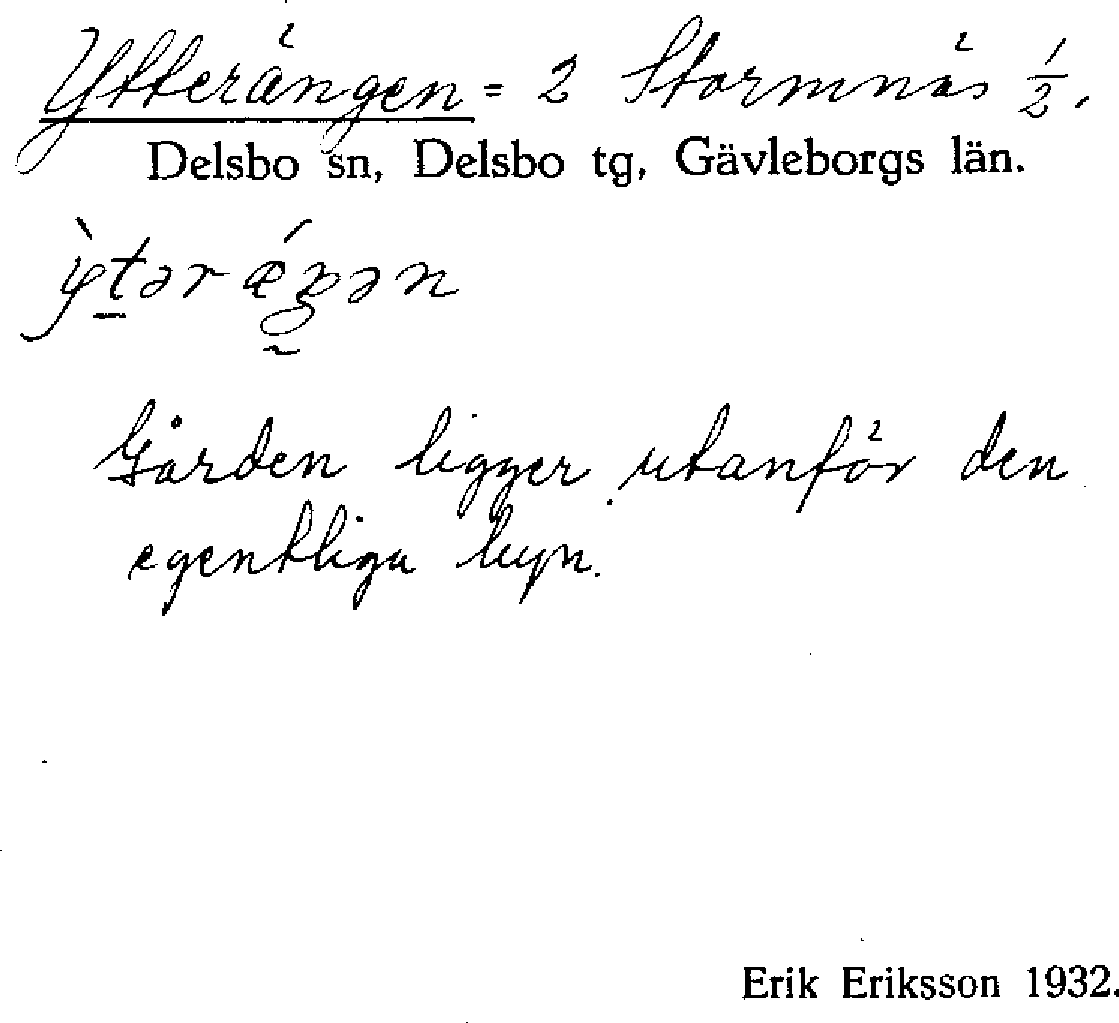 Ytterängen = 2 Stormnäs 1/2.
Delsbo sn, Delsbo tg, Gävleborgs län.
ỳtər ǽŋən
Gården ligger utanför den
egentliga byn.
Erik Eriksson 1932.